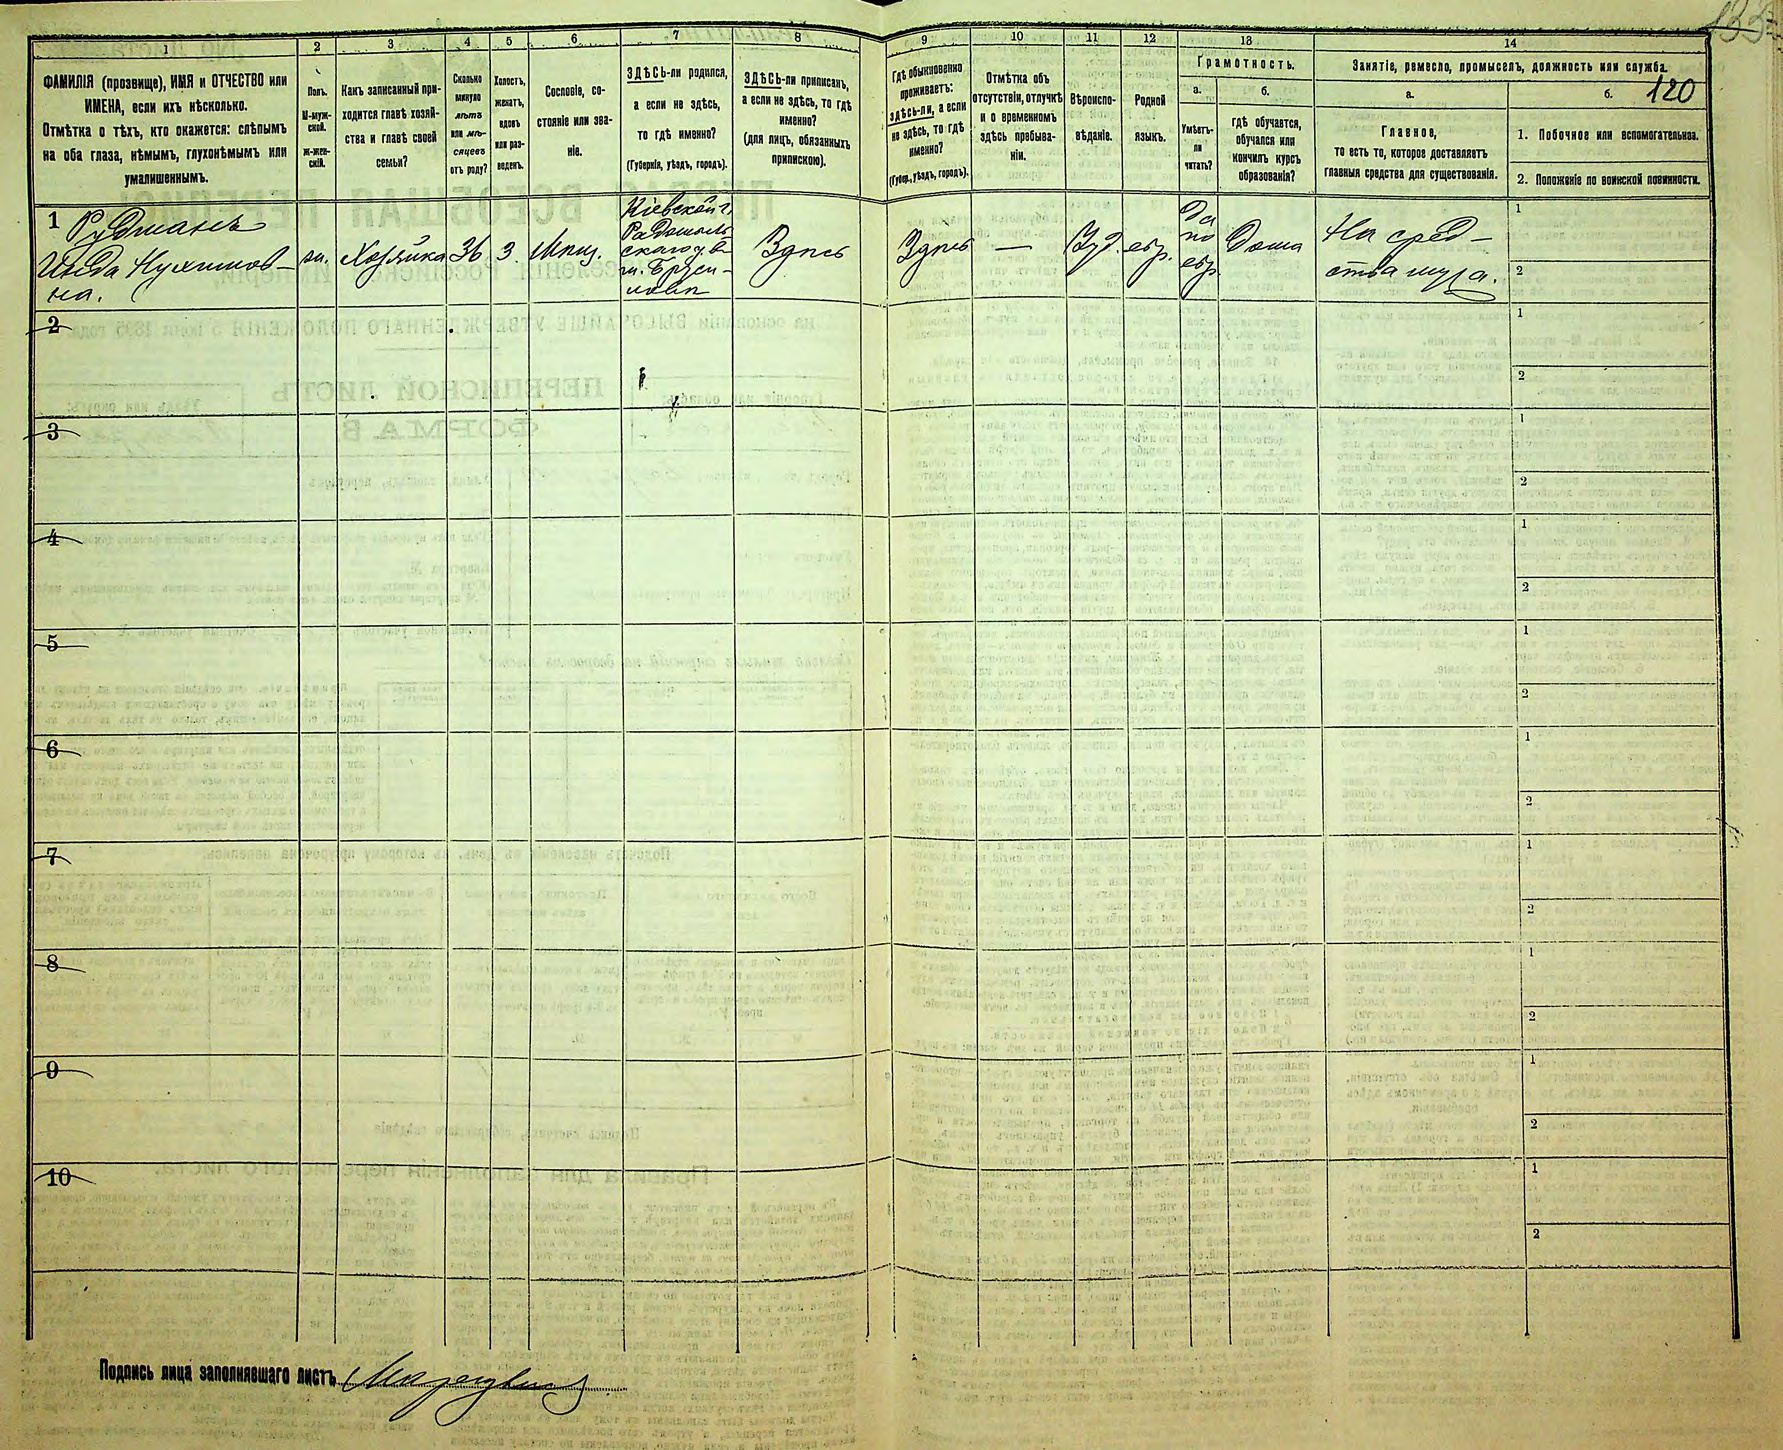 133
120
1 2 3 4 5 6 7 8 9 10 11 12 13 14
ФАМИЛІЯ (прозвище), ИМЯ и ОТЧЕСТВО или
ИМЕНА, если ихъ нѣсколько.
Отмѣтка о тѣхъ, кто окажется: слѣпымъ
на оба глаза, нѣмымъ, глухонѣмымъ или
умалишеннымъ.
Полъ.
М-муж-
ской.
Ж-жен-
скій.
Какъ записанный при-
ходится главѣ хозяй-
ства и главѣ своей
семьи?
Сколько
минуло
лѣтъ
или мѣ-
сяцевъ
отъ роду?
Холостъ,
женатъ,
вдовъ
или раз-
веденъ.
Сословіе, со-
стояніе или зва-
ніе.
ЗДѢСЬ-ли родился,
а если не здѣсь,
то гдѣ именно?
(Губернія, уѣздъ, городъ).
ЗДѢСЬ-ли приписанъ,
а если не здѣсь, то гдѣ
именно?
(для лицъ, обязанныхъ
припискою).
Гдѣ обыкновенно
проживаетъ:
здѣсь-ли, а если
не здѣсь, то гдѣ
именно?
(Губер., уѣздъ, городъ).
Отмѣтка объ
отсутствіи, отлучкѣ
и о временномъ
здѣсь пребыва-
ніи.
Вѣроиспо-
вѣданіе.
Родной
языкъ.
Грамотность.
а.
Умѣетъ-
ли
читать?
б.
гдѣ обучается,
обучался или
кончилъ курсъ
образованія?
Занятіе, ремесло, промыселъ, должность или служба.
а.
Главное,
то есть то, которое доставляетъ
главныя средства для существованія.
б.
1. Побочное или вспомогательное.
2. Положеніе по воинской повинности.
1 Рудманъ
Инда Нухимов-
на.
ж.
Хозяйка
36
З
Мѣщ.
Кіевской г.
Радомысль
скаго у. в
м. Бруси-
ловѣ
Здѣсь
Здѣсь
—
Іуд.
евр.
Да
по
евр.
Дома
На сред-
ства мужа.
1
2
2
1
2
3
1
2
4
1
2
5
1
2
6
1
2
7
1
2
8
1
2
9
1
2
10
1
2
Подпись лица заполнявшаго листъ